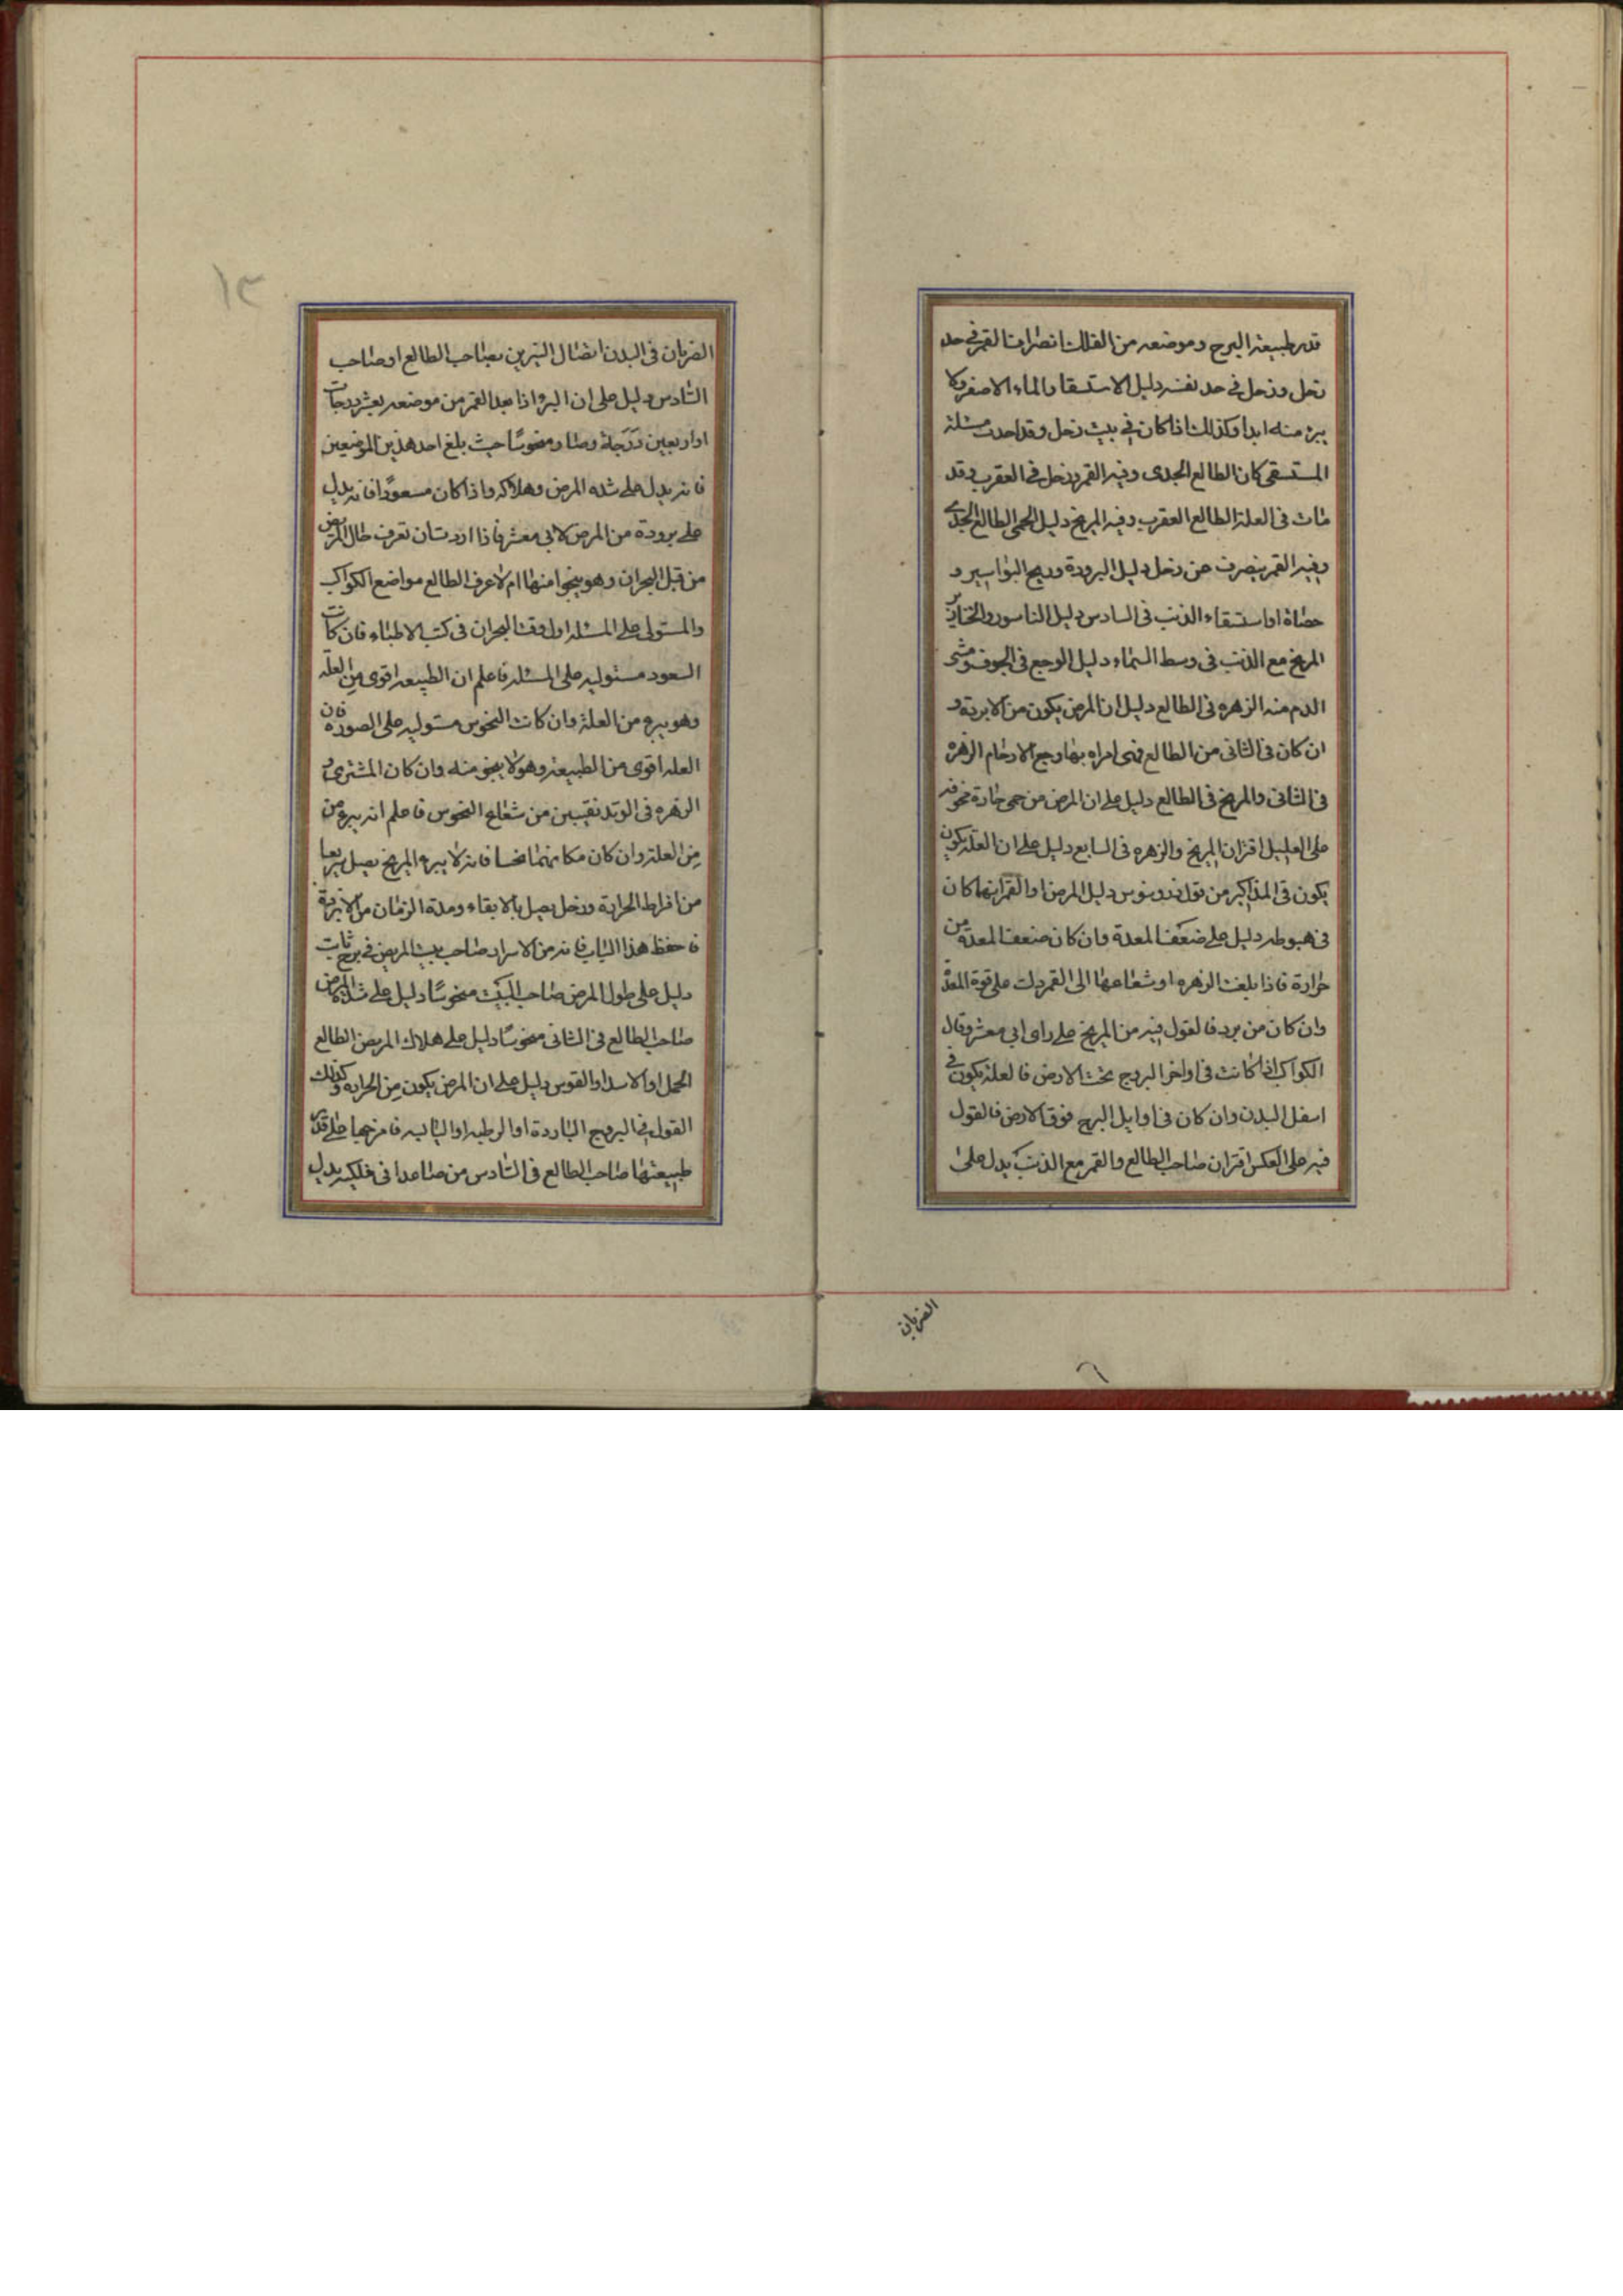 قدر طبيعة البرج وموضعه من الفلك انصراف القمر في حد
زحل وزحل في حد نفسه دليل الاستسقا والماء الاصفر ولا
يبرء منه ابدا وكذلك اذا كان في بيت زحل وقد احدت مسئلة
المستسقى كان الطالع الجدى وفيه القمر وزحل في العقرب وقد
مات في العلة الطالع العقرب وفيه المريخ دليل الحمى الطالع الجدى
وفيه القمر ينصرف عن زحل دليل البرودة وريح البواسير و
حصاة او استسقاء الذنب في السادس دليل الناسور والخنازير
المريخ مع الذنب في وسط السماء دليل الوجع في الجوف ومشى
الدم منه الزهره في الطالع دليل ان المرض يكون من الابردة و
ان كان في الثانى من الطالع فهى امراه بها وجع الارحام الزهرة
في الثانى والمريخ في الطالع دليل على ان المرض من حمى حادة مخوفه
على العليل اقتران المريخ والزهره في السابع دليل على ان العلة يكون
يكون في المذاكير من قول دليل المرض او القمر ايهما كان
في هبوطه دليل على ضعف المعدة وان كان ضعف المعدة من
حرارة فاذا بلغت الزهره او شعاعها الى القمر دلت على قوة المعدة
وان كان من برد فالقول فيه من المريخ على راى ابي معشر وقال
الكواكب اذا كانت في اواخر البروج تحت الارض فالعلة يكون في
اسفل البدن وان كان في اوايل البرج فوق الارض فالقول
فيه على العكس اقتران صاحب الطالع والقمر مع الذنب يدل على
الضربان
١٢
الضربان في البدن اتصال النيرين بصاحب الطالع او صاحب
السادس دليل على ان البرؤ اذا بعد القمر من موضعه بعشر درجات
او اربعين درجة وصار منحوسًا حيث بلغ احد هذين الموضعين
فانه يدل على شده المرض وهلاكه واذا كان مسعودًا فانه يدل
على برودة من المرض لابى معشر فاذا اردت ان تعرف حال المريض
من قبل البحران وهو ينجوا منها ام لا اعرف الطالع مواضع الكواكب
والمستولى على المسئلة اول وقت البحران في كتب الاطباء فان كانت
السعود مستوليه على المسئلة فاعلم ان الطبيعه اقوى من العله
وهو يبرء من العلة وان كانت النحوس مستوليه على الصورة فان
العله اقوى من الطبيعة وهو لا ينجو منه وان كان المشترى و
الزهره في الوتد نقيين من شعاع النحوس فاعلم انه يبرء من
من العلة وان كان مكانهما نحسا فانه لا يبرء المريخ
من افراط الحرارة وزحل بالابقاء ومدة الزمان من الابردة
فاحفظ هذا الباب فانه من الاسرار صاحب بيت المريض في برج ثابت
دليل على طول المرض صاحب البيت منحوسًا دليل على شدة المرض
صاحب الطالع في الثانى منحوسًا دليل على هلاك المريض الطالع
الحمل او الاسد او القوس دليل على ان المرض يكون من الحرارة وكذلك
القول في البروج الباردة او الرطبه او اليابسه فامزجها على قدر
طبيعتها صاحب الطالع في السادس من صاعدا في فلكه يدل